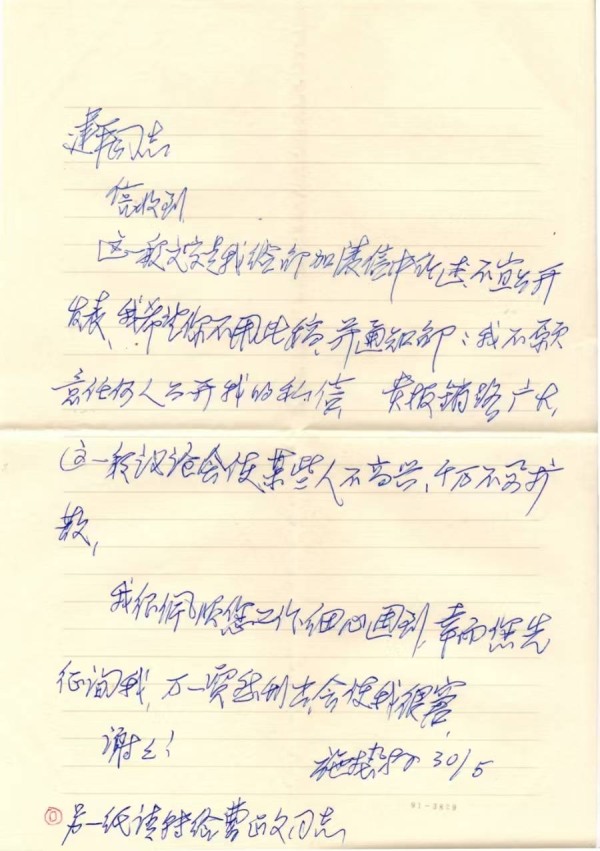 建平同志
信收到
这一段文字是我给邵 信中所述,不宜公开
发表,我希望你不用此稿,并通知邵:我不愿
意任何人公开我的私信 贵报销路广大,
这一段议论会使某些人不高兴,千万不可扩
散,
我很佩服您工作细心周到,幸而您先
征询我,万一贸然刊出,会使我很窘
谢谢!
施蛰存 30/5
91-3429
另一纸请转给曹正文同志